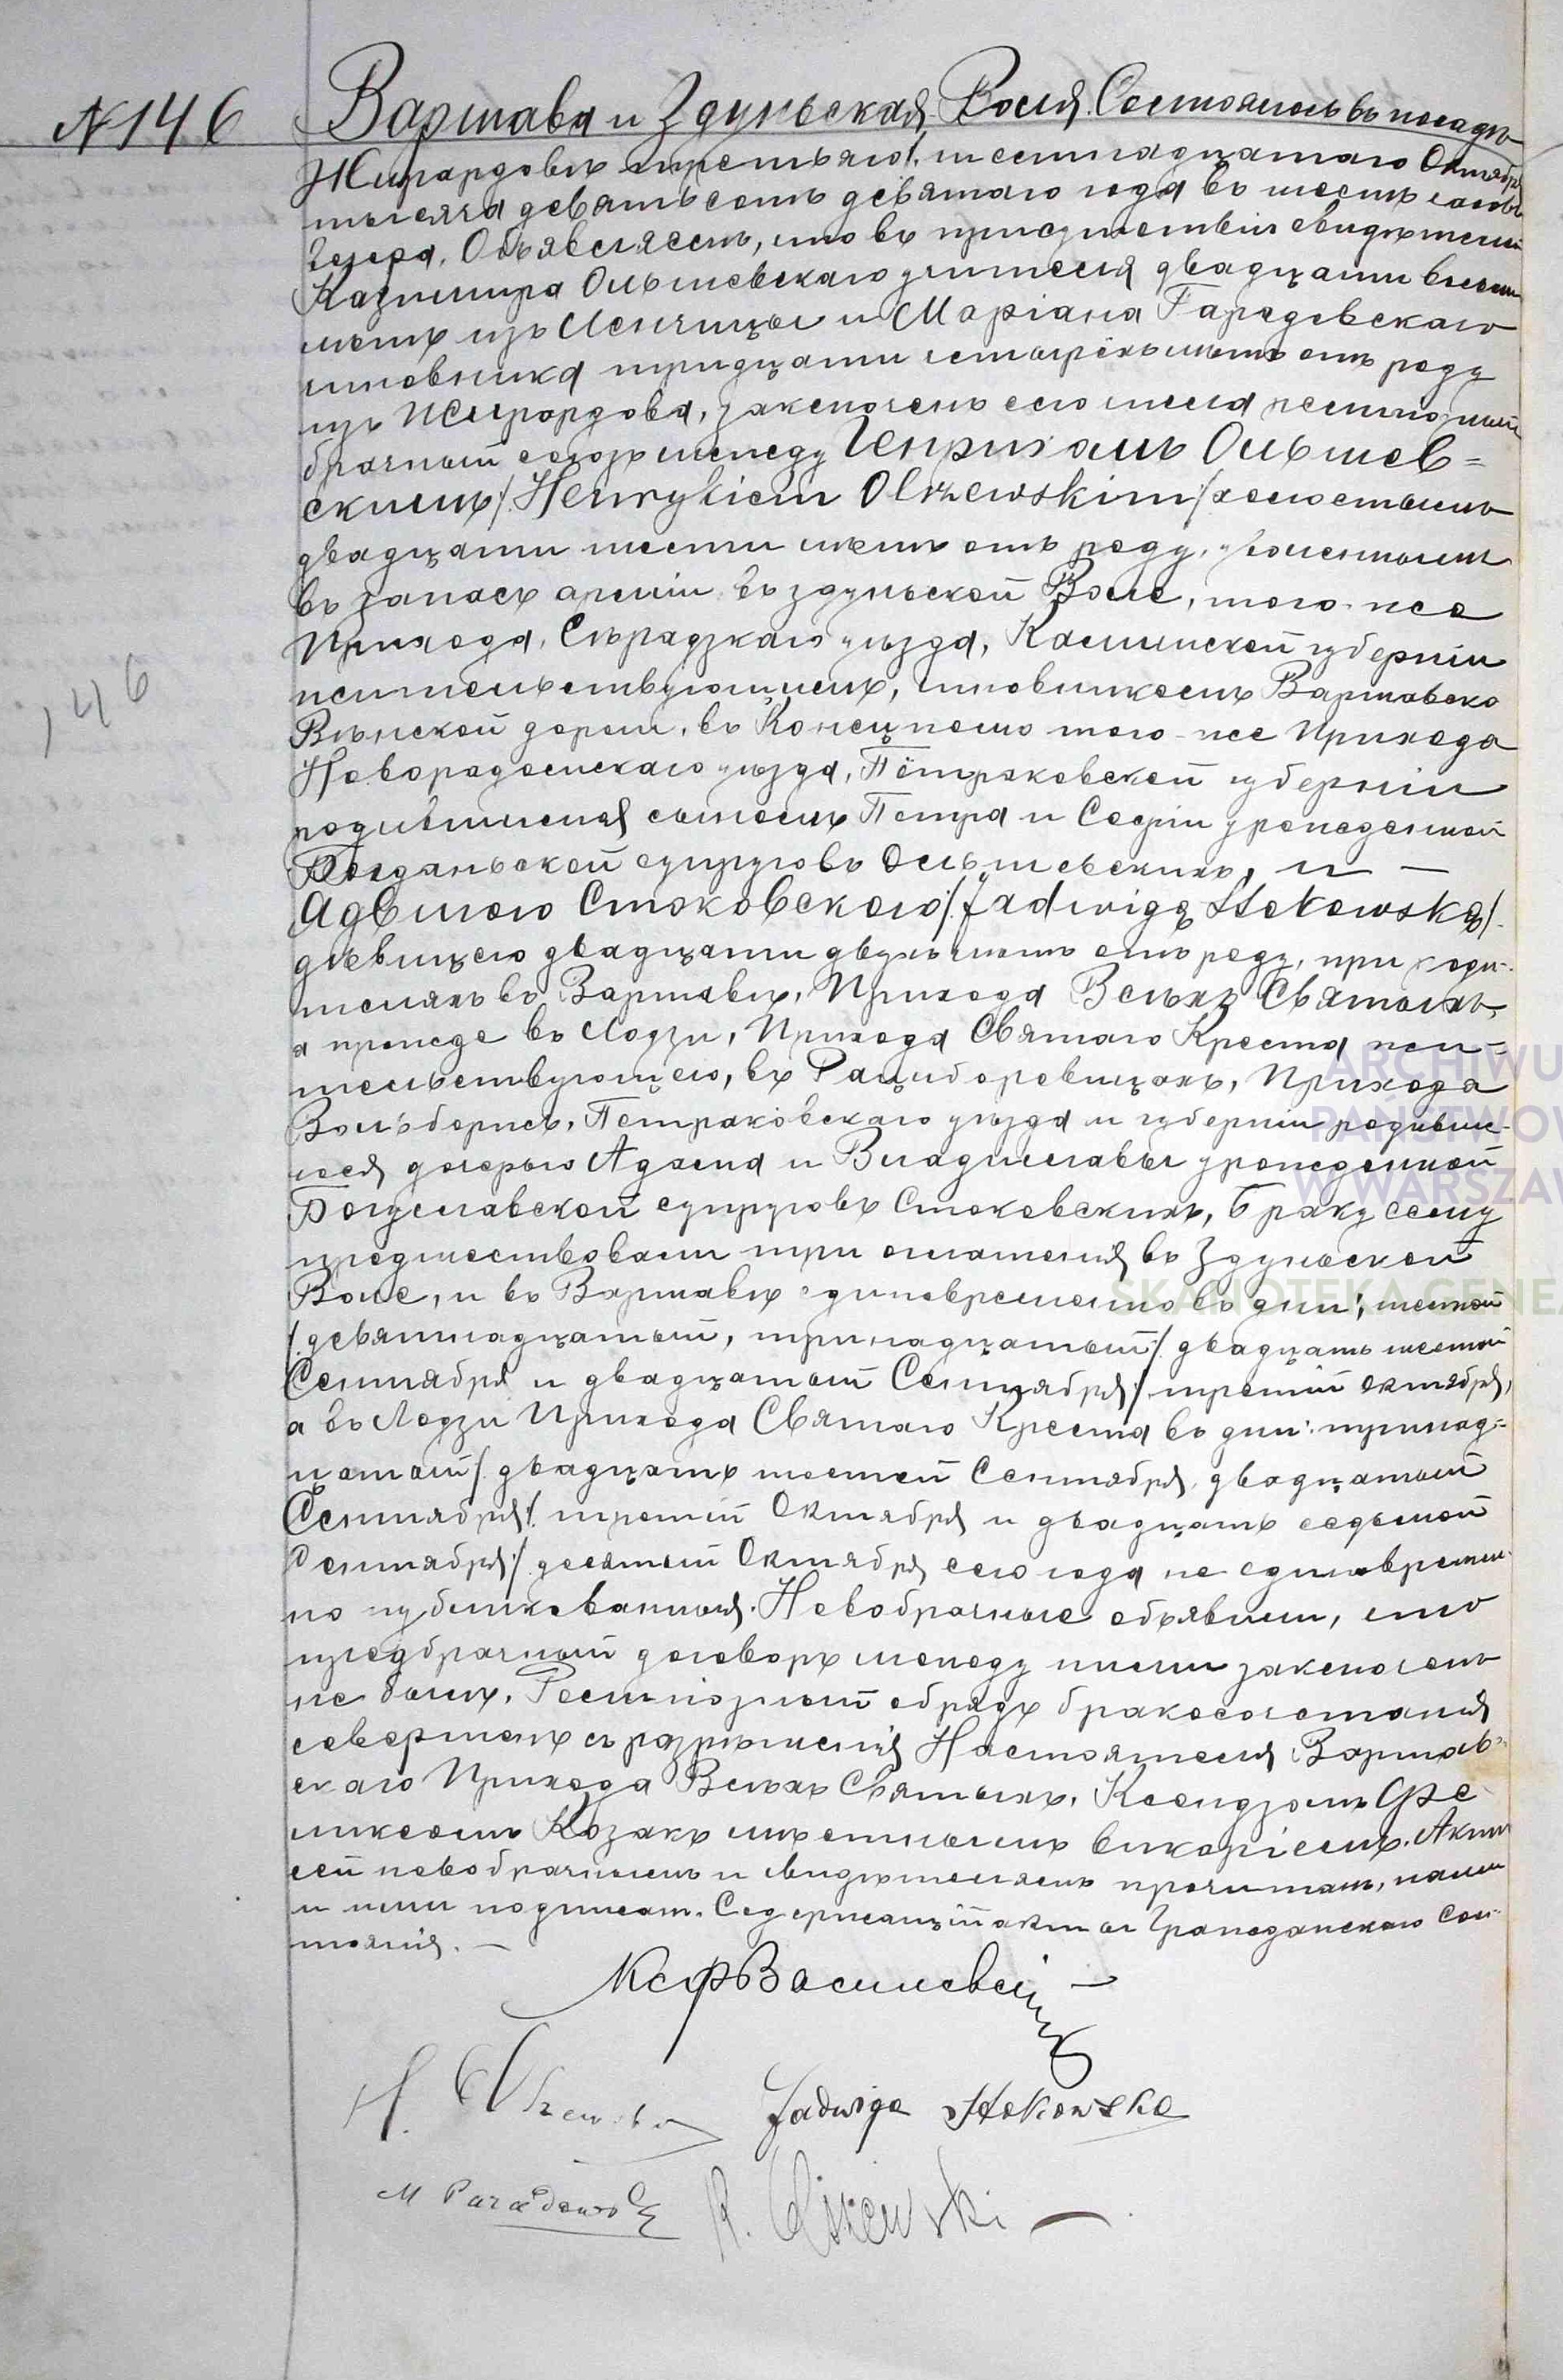 N 146
Варшава и Здуньская Воля. Состоялось въ посадѣ
Жирардовѣ третьяго /: шестнадцатаго Октября
тысяча девятьсотъ девятаго года въ шесть часовъ
вечера. Объявляемъ, что въ присутствіи свидѣтелей
Казимира Ольшевскаго учителя двадцати восьми
лѣтъ изъ Ленчицы и Маріана Парадовскаго
чиновника тридцати четырехъ лѣтъ отъ роду
изъ Жирардова, заключенъ сего числа религіозный
брачный союзъ между Генрихомъ Ольшев=
скимъ /: Henrykiem Olszewskim :/ холостымъ
двадцати шести лѣтъ отъ роду, уволеннымъ
въ запасъ арміи въ Здуньской Воле, того-же
Прихода, Сѣрадзкаго уѣзда, Калишской губерніи
жительствующимъ, чиновникомъ Варшавско
Вѣнской дороги, въ Конецполю того-же Прихода
Новорадомскаго уѣзда, Петраковской губерніи
родившимся сыномъ Петра и Софіи урожденной
супруговъ Ольшевскихъ, и —
Ядвигою Стоковскою /: Jadwigą Stokowską :/
дѣвицею двадцати двухъ лѣтъ отъ роду, при роди-
теляхъ въ Варшавѣ, Прихода Всѣхъ Святыхъ,
а прежде въ Лодзи, Прихода Святаго Креста жи-
тельствующею, въ Рациборовицахъ, Прихода
Вольборжъ, Петраковскаго уѣзда и губерніи родивше-
юся дочерью Адама и Владиславы урожденной
Богуславской супруговъ Стоковскихъ, Браку сему
предшествовали три оглашенія въ Здуньской
Воле, и въ Варшавѣ одновременно въ дни: шестой
/: девятнадцатый, тринадцатый /: двадцать шестой
Сентября и двадцатый Сентября /: третій Октября,
а въ Лодзи Прихода Святаго Креста въ дни: тринад=
цатый /: двадцать шестой Сентября, двадцатый
Сентября /: третій Октября и двадцать седьмой
Сентября /: десятый Октября сего года не одновремен-
но публикованныя. Новобрачные объявили, что
предбрачный договоръ между ними заключенъ
не былъ. Религіозный обрядъ бракосочетанія
совершенъ съ разрѣшенія Настоятеля Варшав-
скаго Прихода Всѣхъ Святыхъ, Ксендзомъ Фе
ликсомъ Козакъ мѣстнымъ викаріемъ. Актъ
сей новобрачнымъ и свидѣтелямъ прочитанъ, нами
и ими подписанъ. Содержащій акты Гражданскаго Сос-
тоянія. —
Кс Ф Василевскій
H. Olszewski Jadwiga Stokowska
M Paradowski K. Olszewski
146
ARCHIWUM
PAŃSTWOWE
W WARSZAWIE
SKANOTEKA GENEA